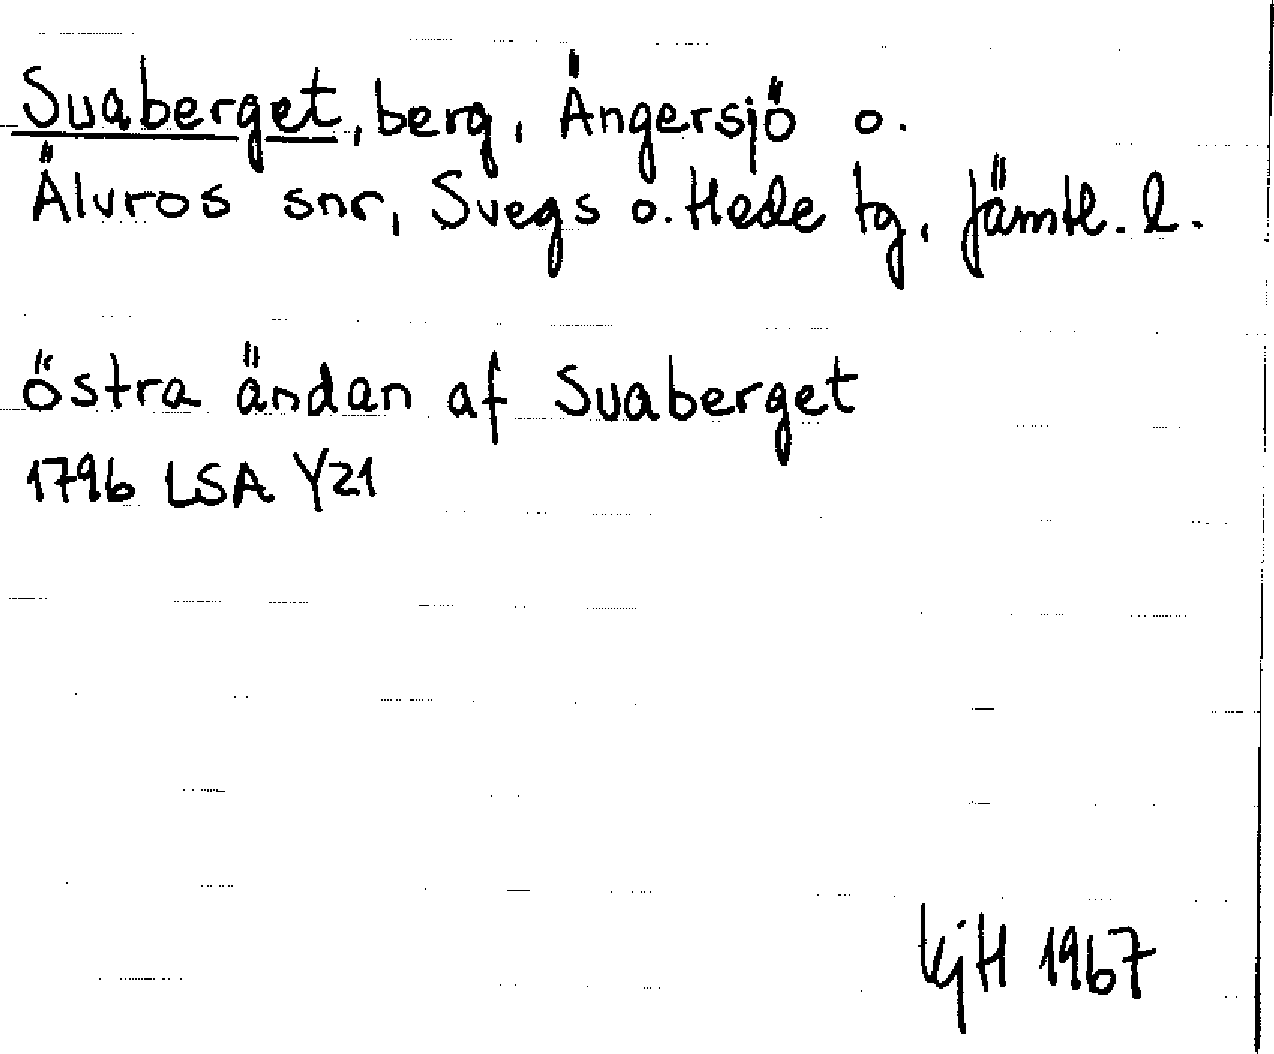 Svaberget, berg, Ängersjö o.
Älvros snr, Svegs o. Hede tg, Jämtl. l.
östra ändan af Svaberget
1796 LSA Y21
KjH 1967